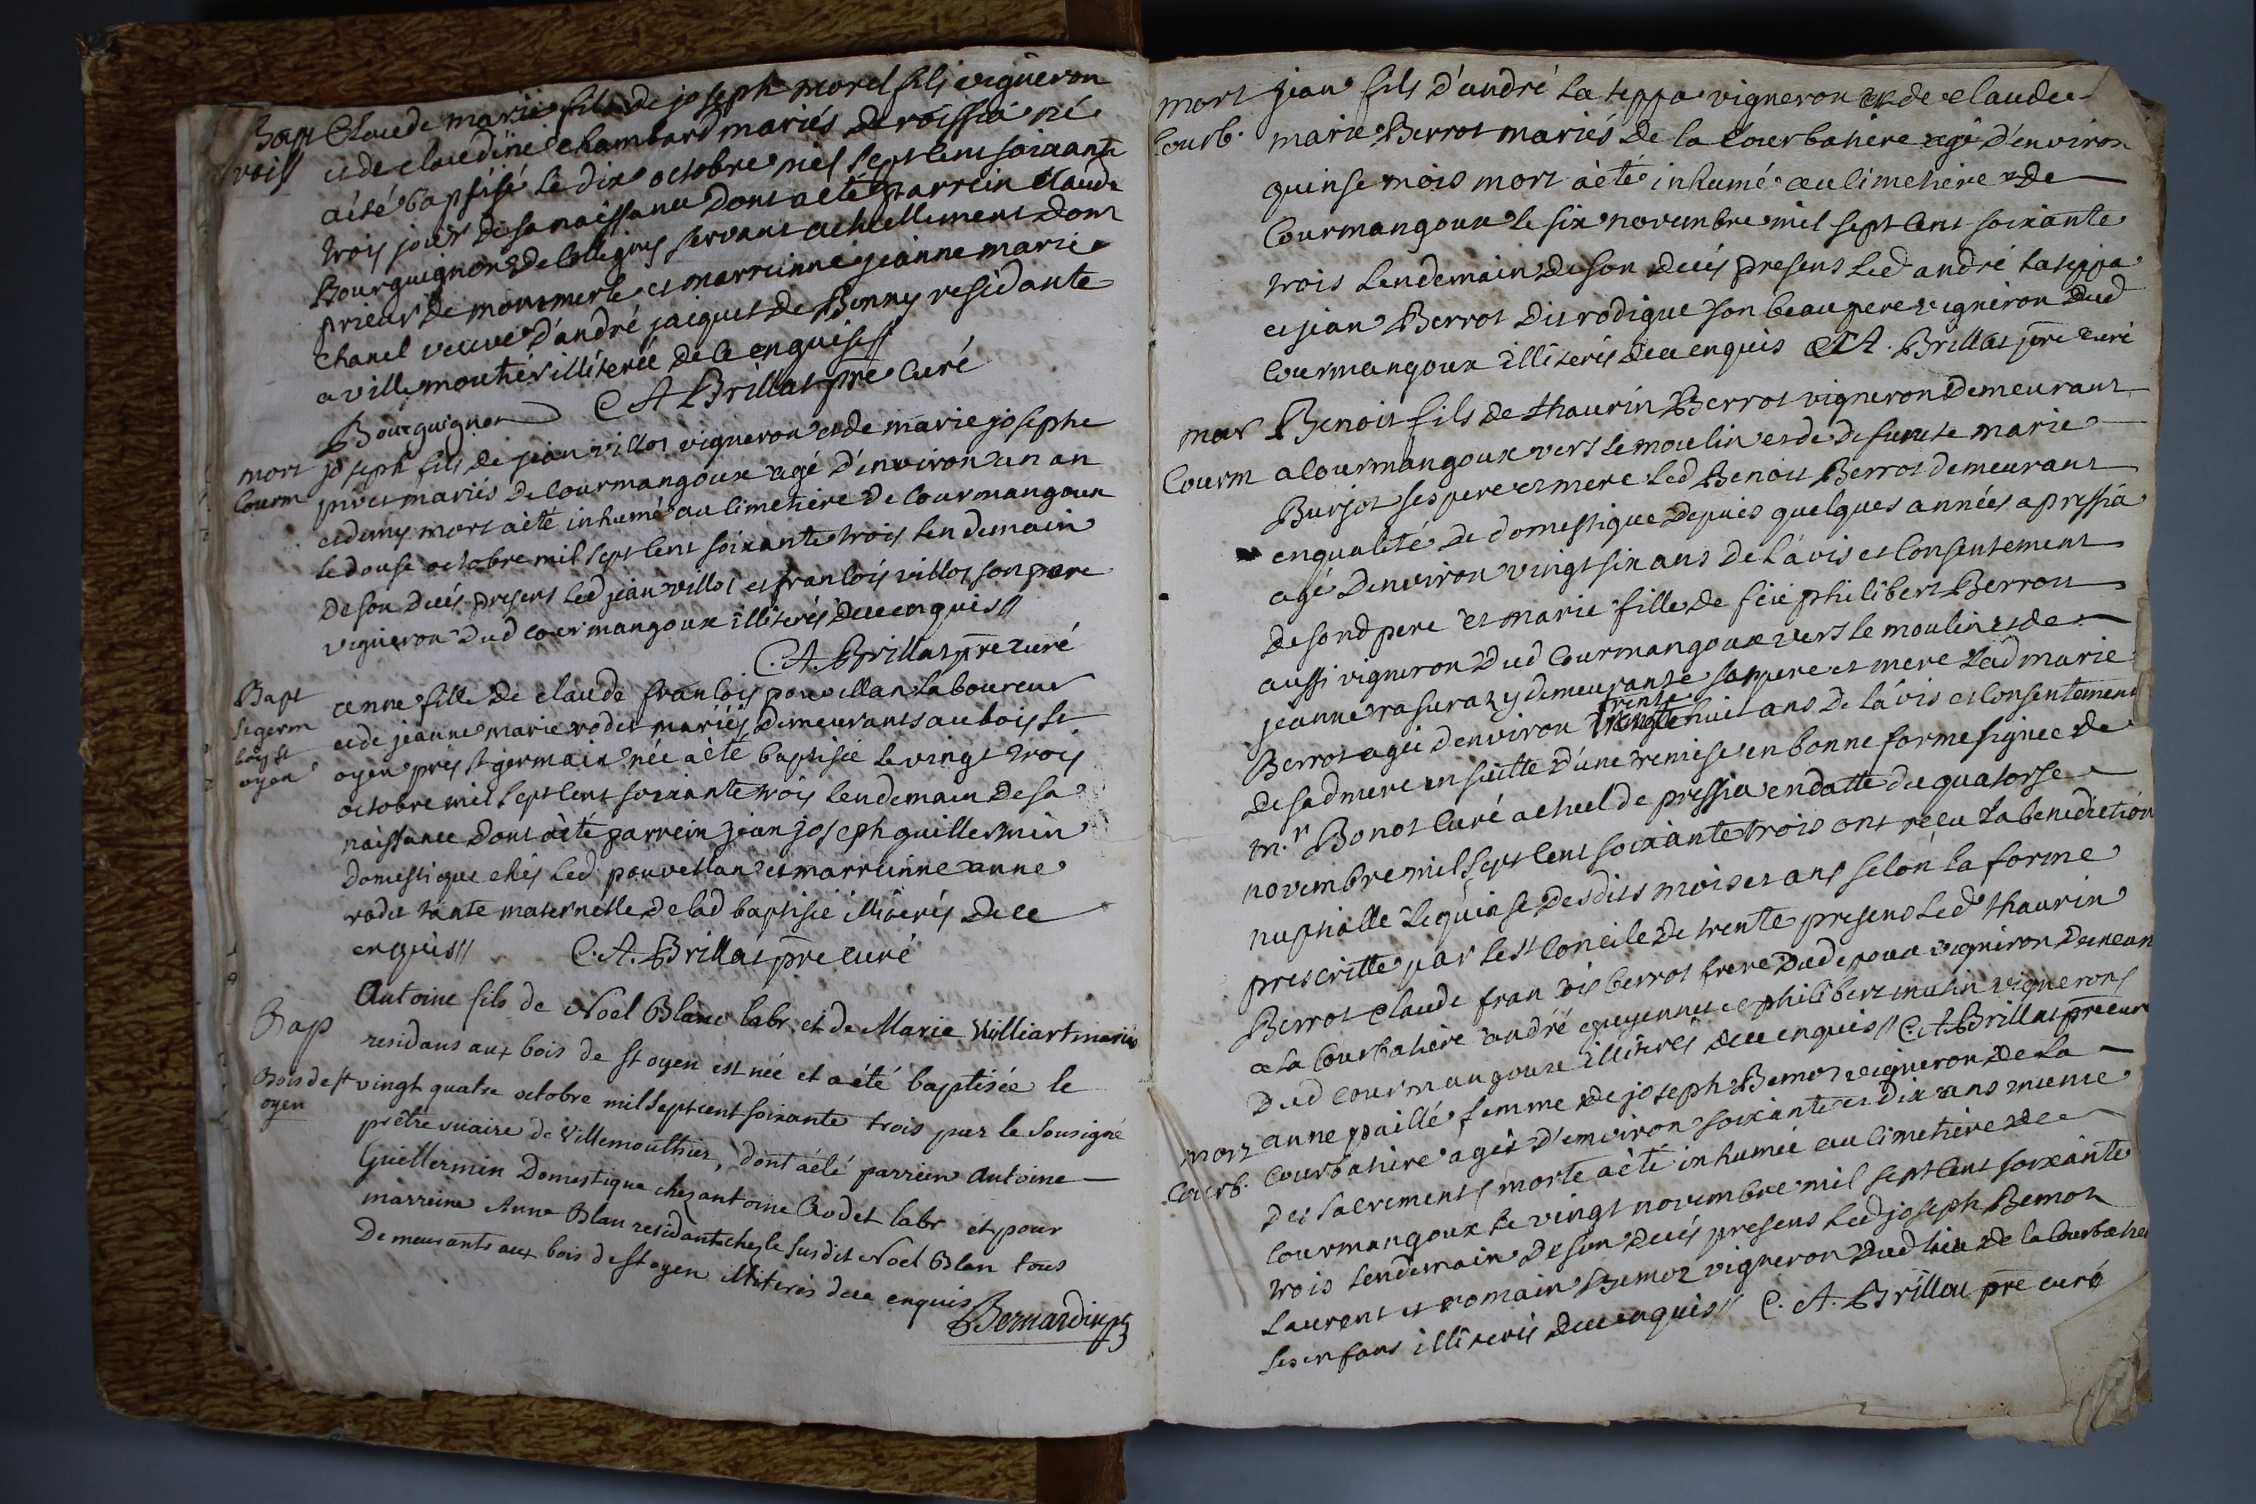 Bapt Claude marie fils de joseph morel fils vigneron
roiss et de claudine chambard mariés de roissia né
a été baptisé le dix octobre mil sept cent soixante
trois jour de sa naissance dont a été parrein claude
Bourguignon de Colligny servant actuellement dom
prieur de montmerle et marreinne jeanne marie
chanel veuve d'andré jaiquet de Benny residante
a villemoutiér illiterée de ce enquise//
Bourguignon C A Brillat pre curé
mort joseph fils de jean villot vigneron et de marie josephe
Courm mariés de Courmangoux agé d'environ un an
et demy mort a été inhumé au cimetiere de Courmangoux
le douse octobre mil sept cent soixante trois lendemain
de son decés presens led jean villot et francois villot son pere
vigneron dud Courmangoux illiterés de ce enquis//
C. A. Brillat pre curé
Bapt anne fille de claude francois pouvillan laboureur
St germ et de jeanne marie rodet mariés demeurants au bois St
bois St oyen prés St germain née a été baptisée le vingt trois
oyen octobre mil sept cent soixante trois lendemain de sa
naissance dont a été parrein jean joseph guillermin
domestique chés led pouvillan et marreinne anne
rodet tante maternelle de lad baptisée illiterés de ce
enquis// C. A. Brillat pre curé
Bap Antoine fils de Noël Blanc labr. et de Marie Vuilliart mariés
residans aux bois de St oyen est née et a été baptisée le
Bois de St vingt quatre octobre mil sept cent soixante trois par le sousigné
oyen prêtre vicaire de Villemouthier, dont a été parrien Antoine
Guillermin Domestique chez antoine Rodet labr et pour
marreine Anne Blan residante chez le susdit Noël Blan tous
Demeurants aux bois de St oyen illiterés de ce enquis
Bernardin ptre
mort jean fils d'andré La teppa vigneron et de claude
Courb. marie Berrot mariés de la Courbatiere agé d'environ
quinse mois mort a été inhumé au cimetiere de
Courmangoux le six novembre mil sept cent soixante
trois lendemain de son decés presens led andré lateppa
et jean Berrot dit rodigue son beaupere vigneron dud
Courmangoux illiterés de ce enquis C A. Brillat pre curé
mar Benoit fils de thaurin Berrot vigneron demeurant
Courm a Courmangoux vers le moulin et de defuncte marie
Burjot ses pere et mere led Benoit Berrot demeurant
en qualité de domestique depuis quelques années a pressia
agé d'environ vingt six ans de l'avis et consentement
de sond pere et marie fille de feu philibert Berrot
aussi vigneron dud Courmangoux vers le moulin et de
jeanne rasurazy demeurante ses pere et mere lad marie
trente
Berrot agée d'environ huit ans de l'avis et consentement
de sad mere en suitte d'une remise en bonne forme signée de
m.r Bonot curé actuel de pressia en datte du quatorse
novembre mil sept cent soixante trois ont reçu la benediction
nuptialle le quinse desdits mois et ans selon la forme
prescritte par le St Concile de trente presens led thaurin
Berrot claude francois berrot frere dud epoux vigneron demeurant
a la Courbatiere andré guyennet philibert mulin vignerons
dud Courmangoux illiterés de ce enquis// C. A. Brillat pre curé
mort anne paillé femme de joseph Bemot vigneron de la
Courb. Courbatiere agée d'environ soixante et dix ans munie
des sacrements morte a été inhumée au cimetiere de
Courmangoux le vingt novembre mil sept cent soixante
trois lendemain de son decés presens led joseph Bemot
Laurent et romain Bemoz vigneron dud lieu de la Courbatiere
ses enfans illiterés de ce enquis// C. A. Brillat pre curé